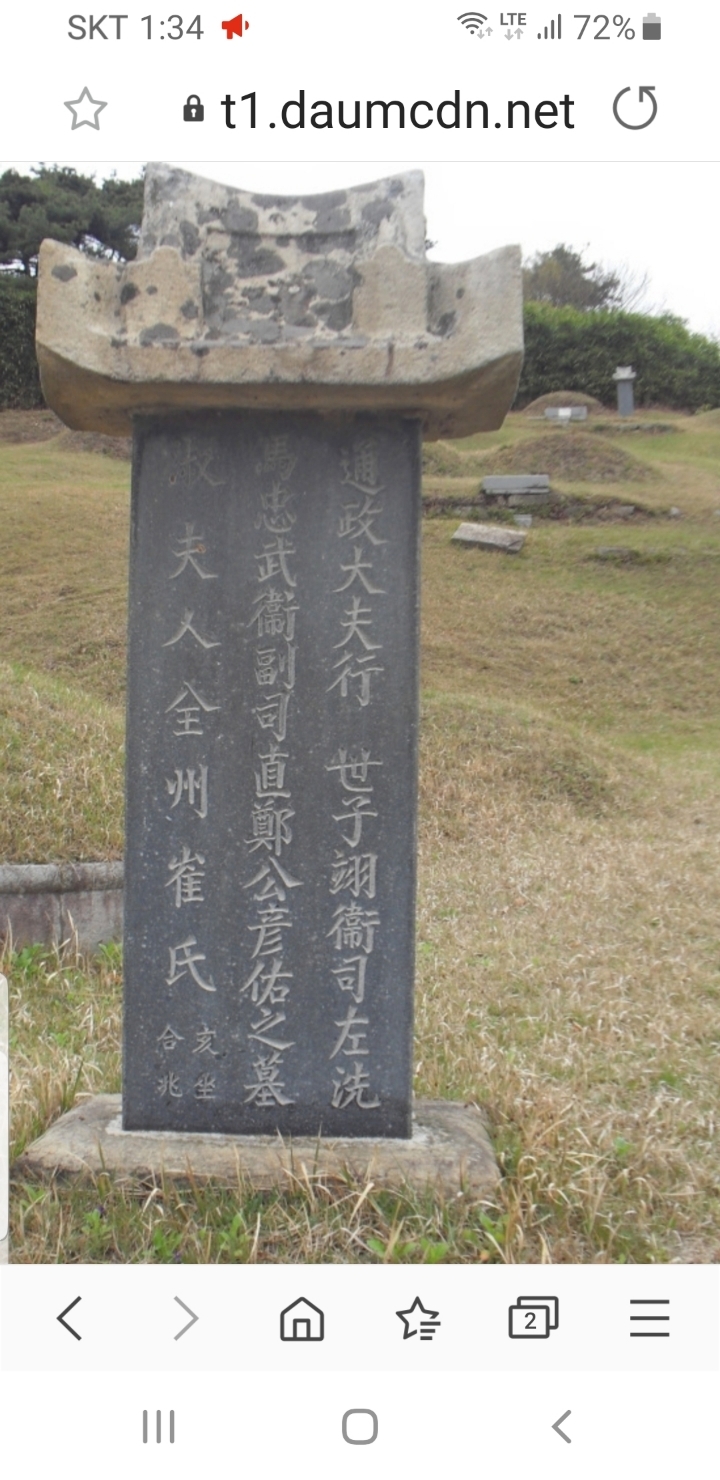 SKT 1:34
LTE
72%
t1.daumcdn.net
通政大夫行 世子翊衞司左洗
馬忠武衞副司直鄭公彦佑之墓
淑夫人全州崔氏
亥坐
合兆
2